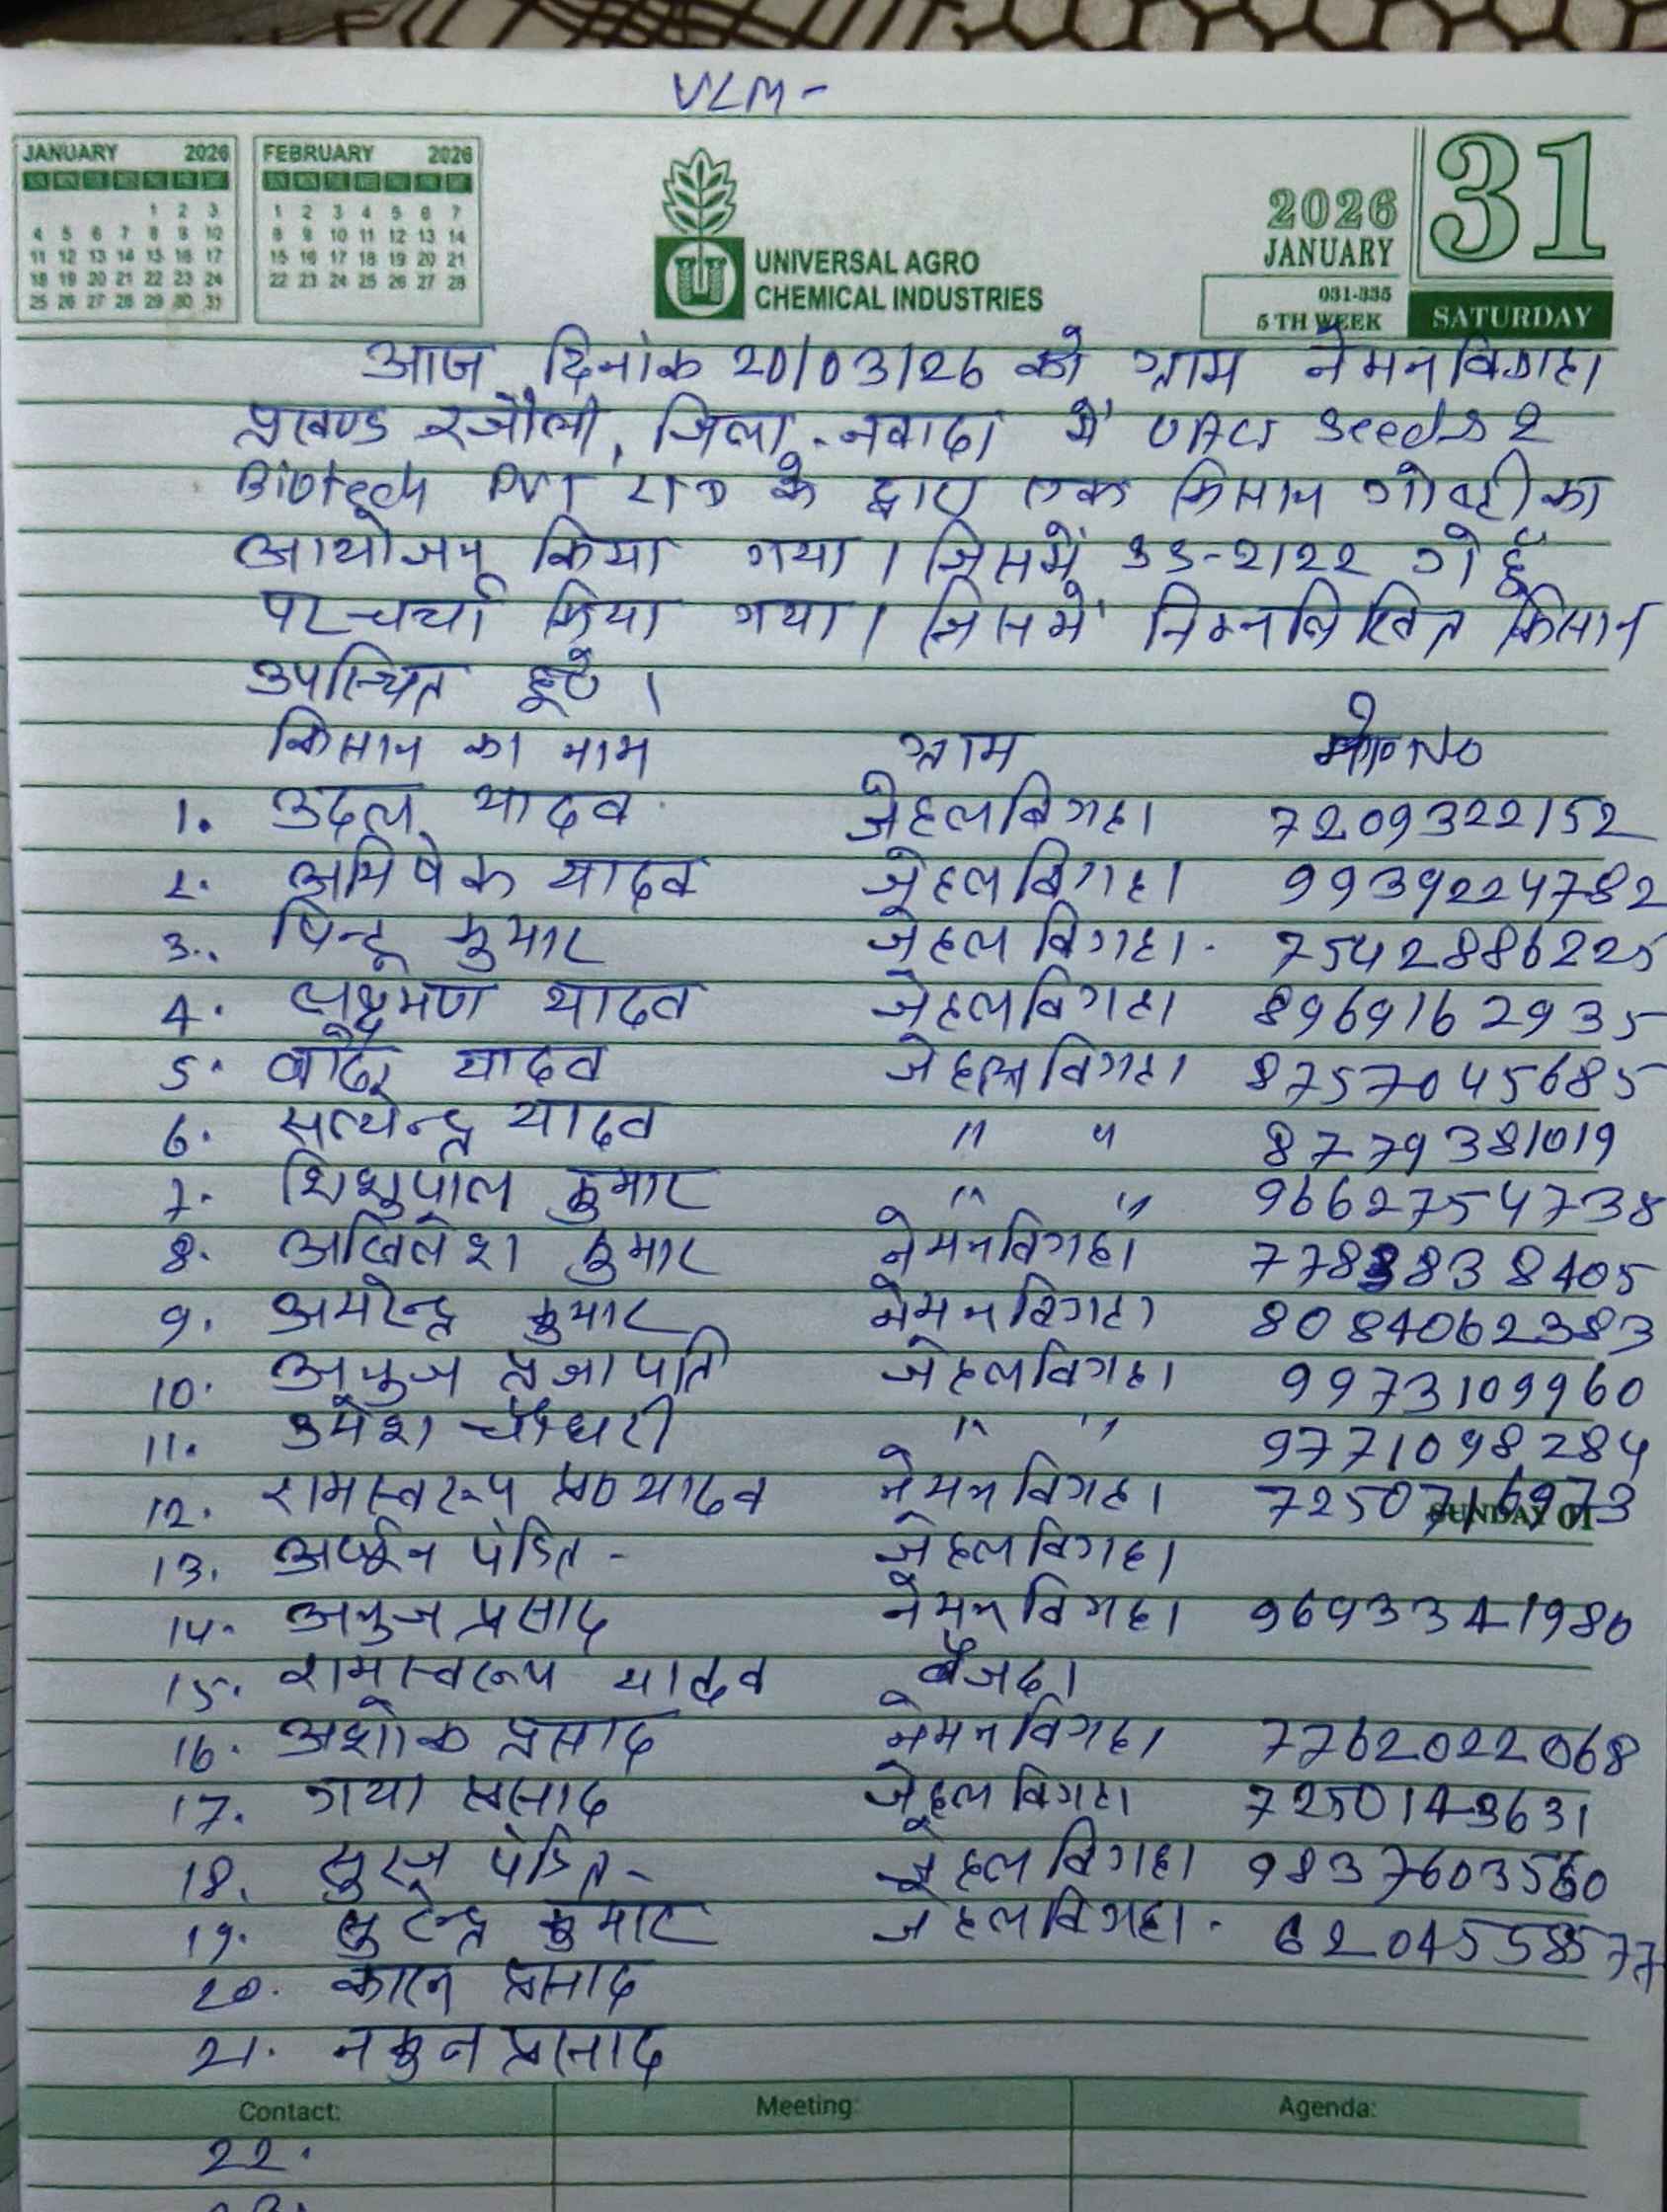 VLM-
JANUARY 2026
1 2 3
4 5 6 7 8 9 10
11 12 13 14 15 16 17
18 19 20 21 22 23 24
25 26 27 28 29 30 31
FEBRUARY 2026
1 2 3 4 5 6 7
8 9 10 11 12 13 14
15 16 17 18 19 20 21
22 23 24 25 26 27 28
UNIVERSAL AGRO
CHEMICAL INDUSTRIES
2026
JANUARY
31
031-335
5 TH WEEK
SATURDAY
आज दिनांक 20/03/26 को ग्राम नेमनविगहा
प्रखण्ड रजौली, जिला - नवादा में UACI Seeds &
Biotech PVT LTD के द्वारा एक किसान गोष्टी का
आयोजन किया गया । जिसमें SS-2122 गेहूँ
पर चर्चा किया गया । जिसमें निम्नलिखित किसान
उपस्थित हुऐ ।
किसान का नाम ग्राम मो० No
1. उदल यादव जेहलबिगहा 7209322152
2. अभिषेक यादव जेहलबिगहा 9939224782
3. पिन्टू कुमार जेहलविगहा. 7542886225
4. लक्ष्मण यादव जेहलविगहा 8969162935
5. यादव जेहलविगहा 8757045685
6. सत्येन्द्र यादव " " 8779381019
7. शिशुपाल कुमार " " 9662754738
8. अखिलेश कुमार नेमनविगहा 778838405
9. अमरेन्द्र कुमार नेमनविगहा 8084062383
10. अनुज प्रजापति जेहलविगहा 9973109960
11. उमेश चौधरी " " 9771098284
12. रामस्वरूप प्र० यादव नेमनविगहा 7250716973
SUNDAY 01
13. अर्जुन पंडित - जेहलविगहा
14. अनुज प्रसाद नेमनविगहा 9693341980
15. रामस्वरूप यादव बैजदा
16. अशोक प्रसाद नेमनविगहा 7762022068
17. गया प्रसाद जेहलविगहा 7250143631
18. सुरज पंडित - जेहलविगहा 9837603560
19. सुरेन्द्र कुमार जेहलविगहा. 6204558577
20. प्रसाद
21. नकुल प्रसाद
Contact: Meeting: Agenda:
22.